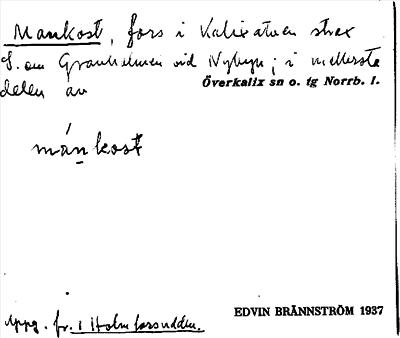 Mankost, fors i Kalixälven strax
S. om Granholmen vid Nybyn; i mellersta
delen av Överkalix sn o. tg Norrb. l.
mánkost
EDVIN BRÄNNSTRÖM 1937
uppg. fr. i Holmforsudden.